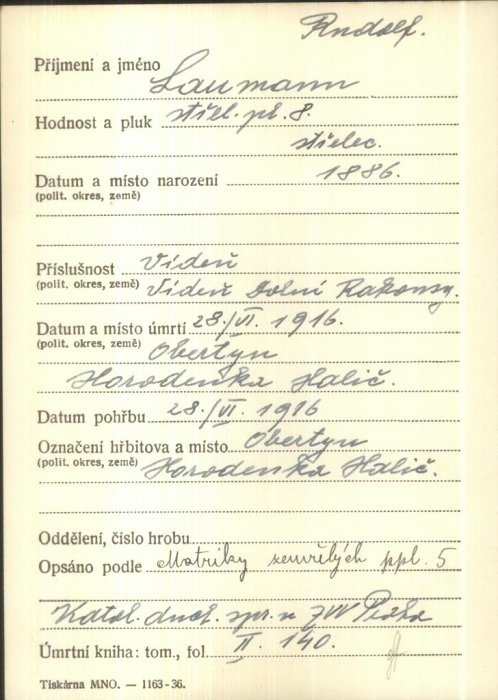 Rudolf.
Příjmení a jméno Laumann
Hodnost a pluk střel. pl. 8.
střelec.
Datum a místo narození 1886.
(polit. okres, země)
Příslušnost Videň
(polit. okres, země) Videň Dolní Rakousy.
Datum a místo úmrtí 28./VI. 1916.
(polit. okres, země) Obertyn
Horodenka Halič.
Datum pohřbu 28./VI. 1916
Označení hřbitova a místo Obertyn
(polit. okres, země) Horodenka Halič.
Oddělení, číslo hrobu
Opsáno podle Matriky zemřelých ppl. 5
Katol. duch. spr. v Praha
Úmrtní kniha: tom., fol. II. 140.
Tiskárna MNO. — 1163-36.